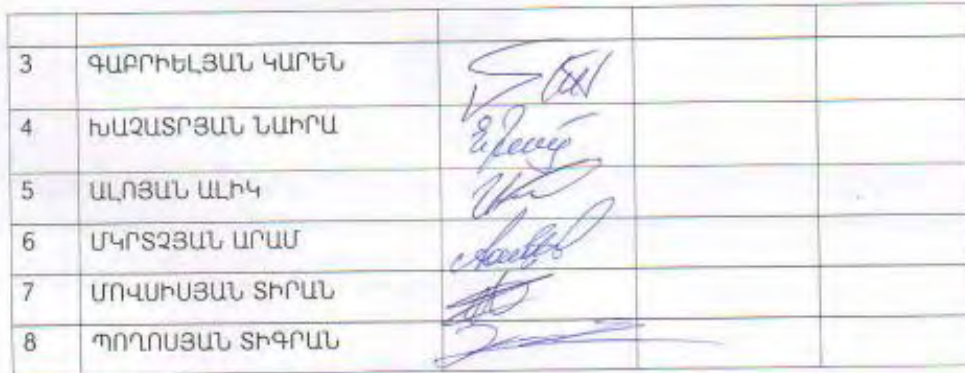 3 ԳԱԲՐԻԵԼՅԱՆ ԿԱՐԵՆ
4 ԽԱՉԱՏՐՅԱՆ ՆԱԻՐԱ
5 ԱԼՈՅԱՆ ԱԼԻԿ
6 ՄԿՐՏՉՅԱՆ ԱՐԱՄ
7 ՄՈՎՍԻՍՅԱՆ ՏԻՐԱՆ
8 ՊՈՂՈՍՅԱՆ ՏԻԳՐԱՆ